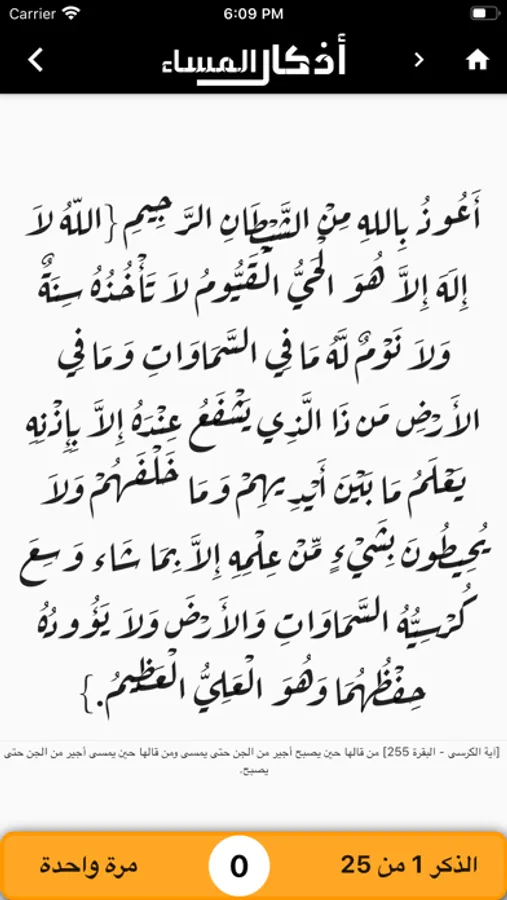 Carrier 6:09 PM
أذكار المساء
أَعُوذُ بِاللهِ مِنْ الشَّيْطَانِ الرَّجِيمِ {اللّهُ لاَ
إِلَهَ إِلاَّ هُوَ الْحَيُّ الْقَيُّومُ لاَ تَأْخُذُهُ سِنَةٌ
وَلاَ نَوْمٌ لَّهُ مَا فِي السَّمَاوَاتِ وَمَا فِي
الأَرْضِ مَن ذَا الَّذِي يَشْفَعُ عِنْدَهُ إِلاَّ بِإِذْنِهِ
يَعْلَمُ مَا بَيْنَ أَيْدِيهِمْ وَمَا خَلْفَهُمْ وَلاَ
يُحِيطُونَ بِشَيْءٍ مِّنْ عِلْمِهِ إِلاَّ بِمَا شَاء وَسِعَ
كُرْسِيُّهُ السَّمَاوَاتِ وَالأَرْضَ وَلاَ يَؤُودُهُ
حِفْظُهُمَا وَهُوَ الْعَلِيُّ الْعَظِيمُ.}
[آية الكرسى - البقرة 255] من قالها حين يصبح أجير من الجن حتى يمسى ومن قالها حين يمسى أجير من الجن حتى
يصبح.
الذكر 1 من 25 0 مرة واحدة